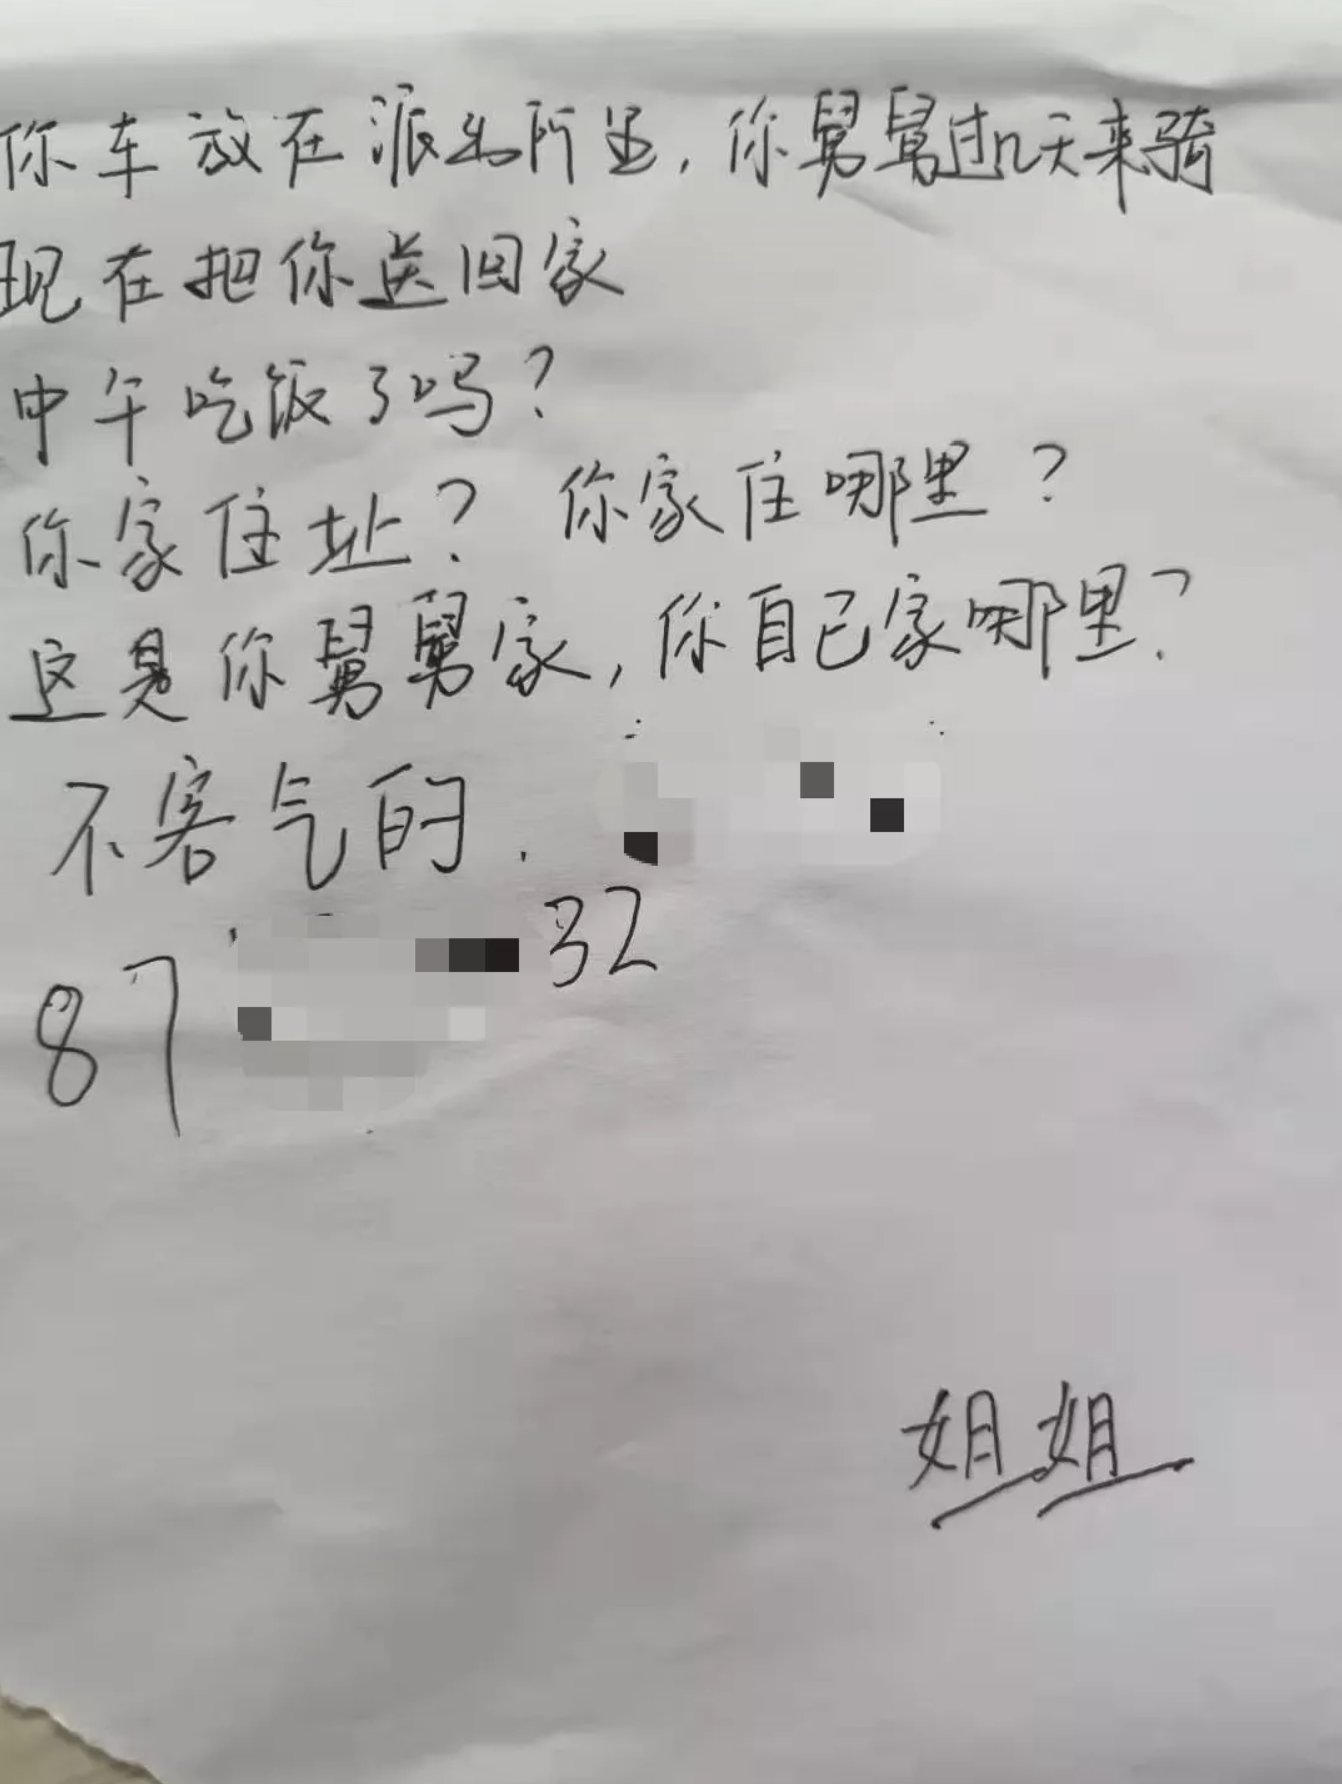 你车放在派出所里,你舅舅过几天来骑
现在把你送回家
中午吃饭了吗?
你家住址? 你家住哪里?
这是你舅舅家,你自己家哪里?
不客气的.
87 32
姐姐